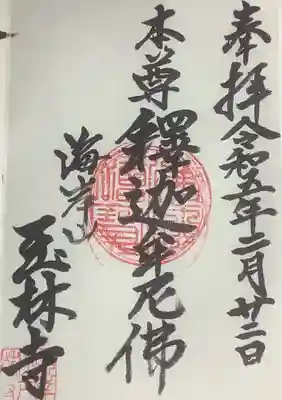 奉拝令和五年二月廿二日
本尊釋迦牟尼佛
玉林寺